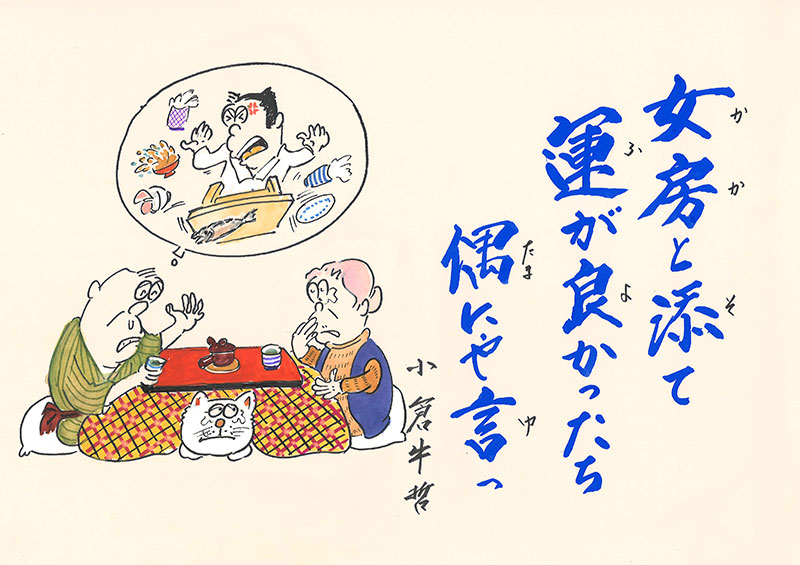 女房と添て
かか そ
運が良かったち
ふ よ
偶にや言っ
たま ゆ
小倉牛哲